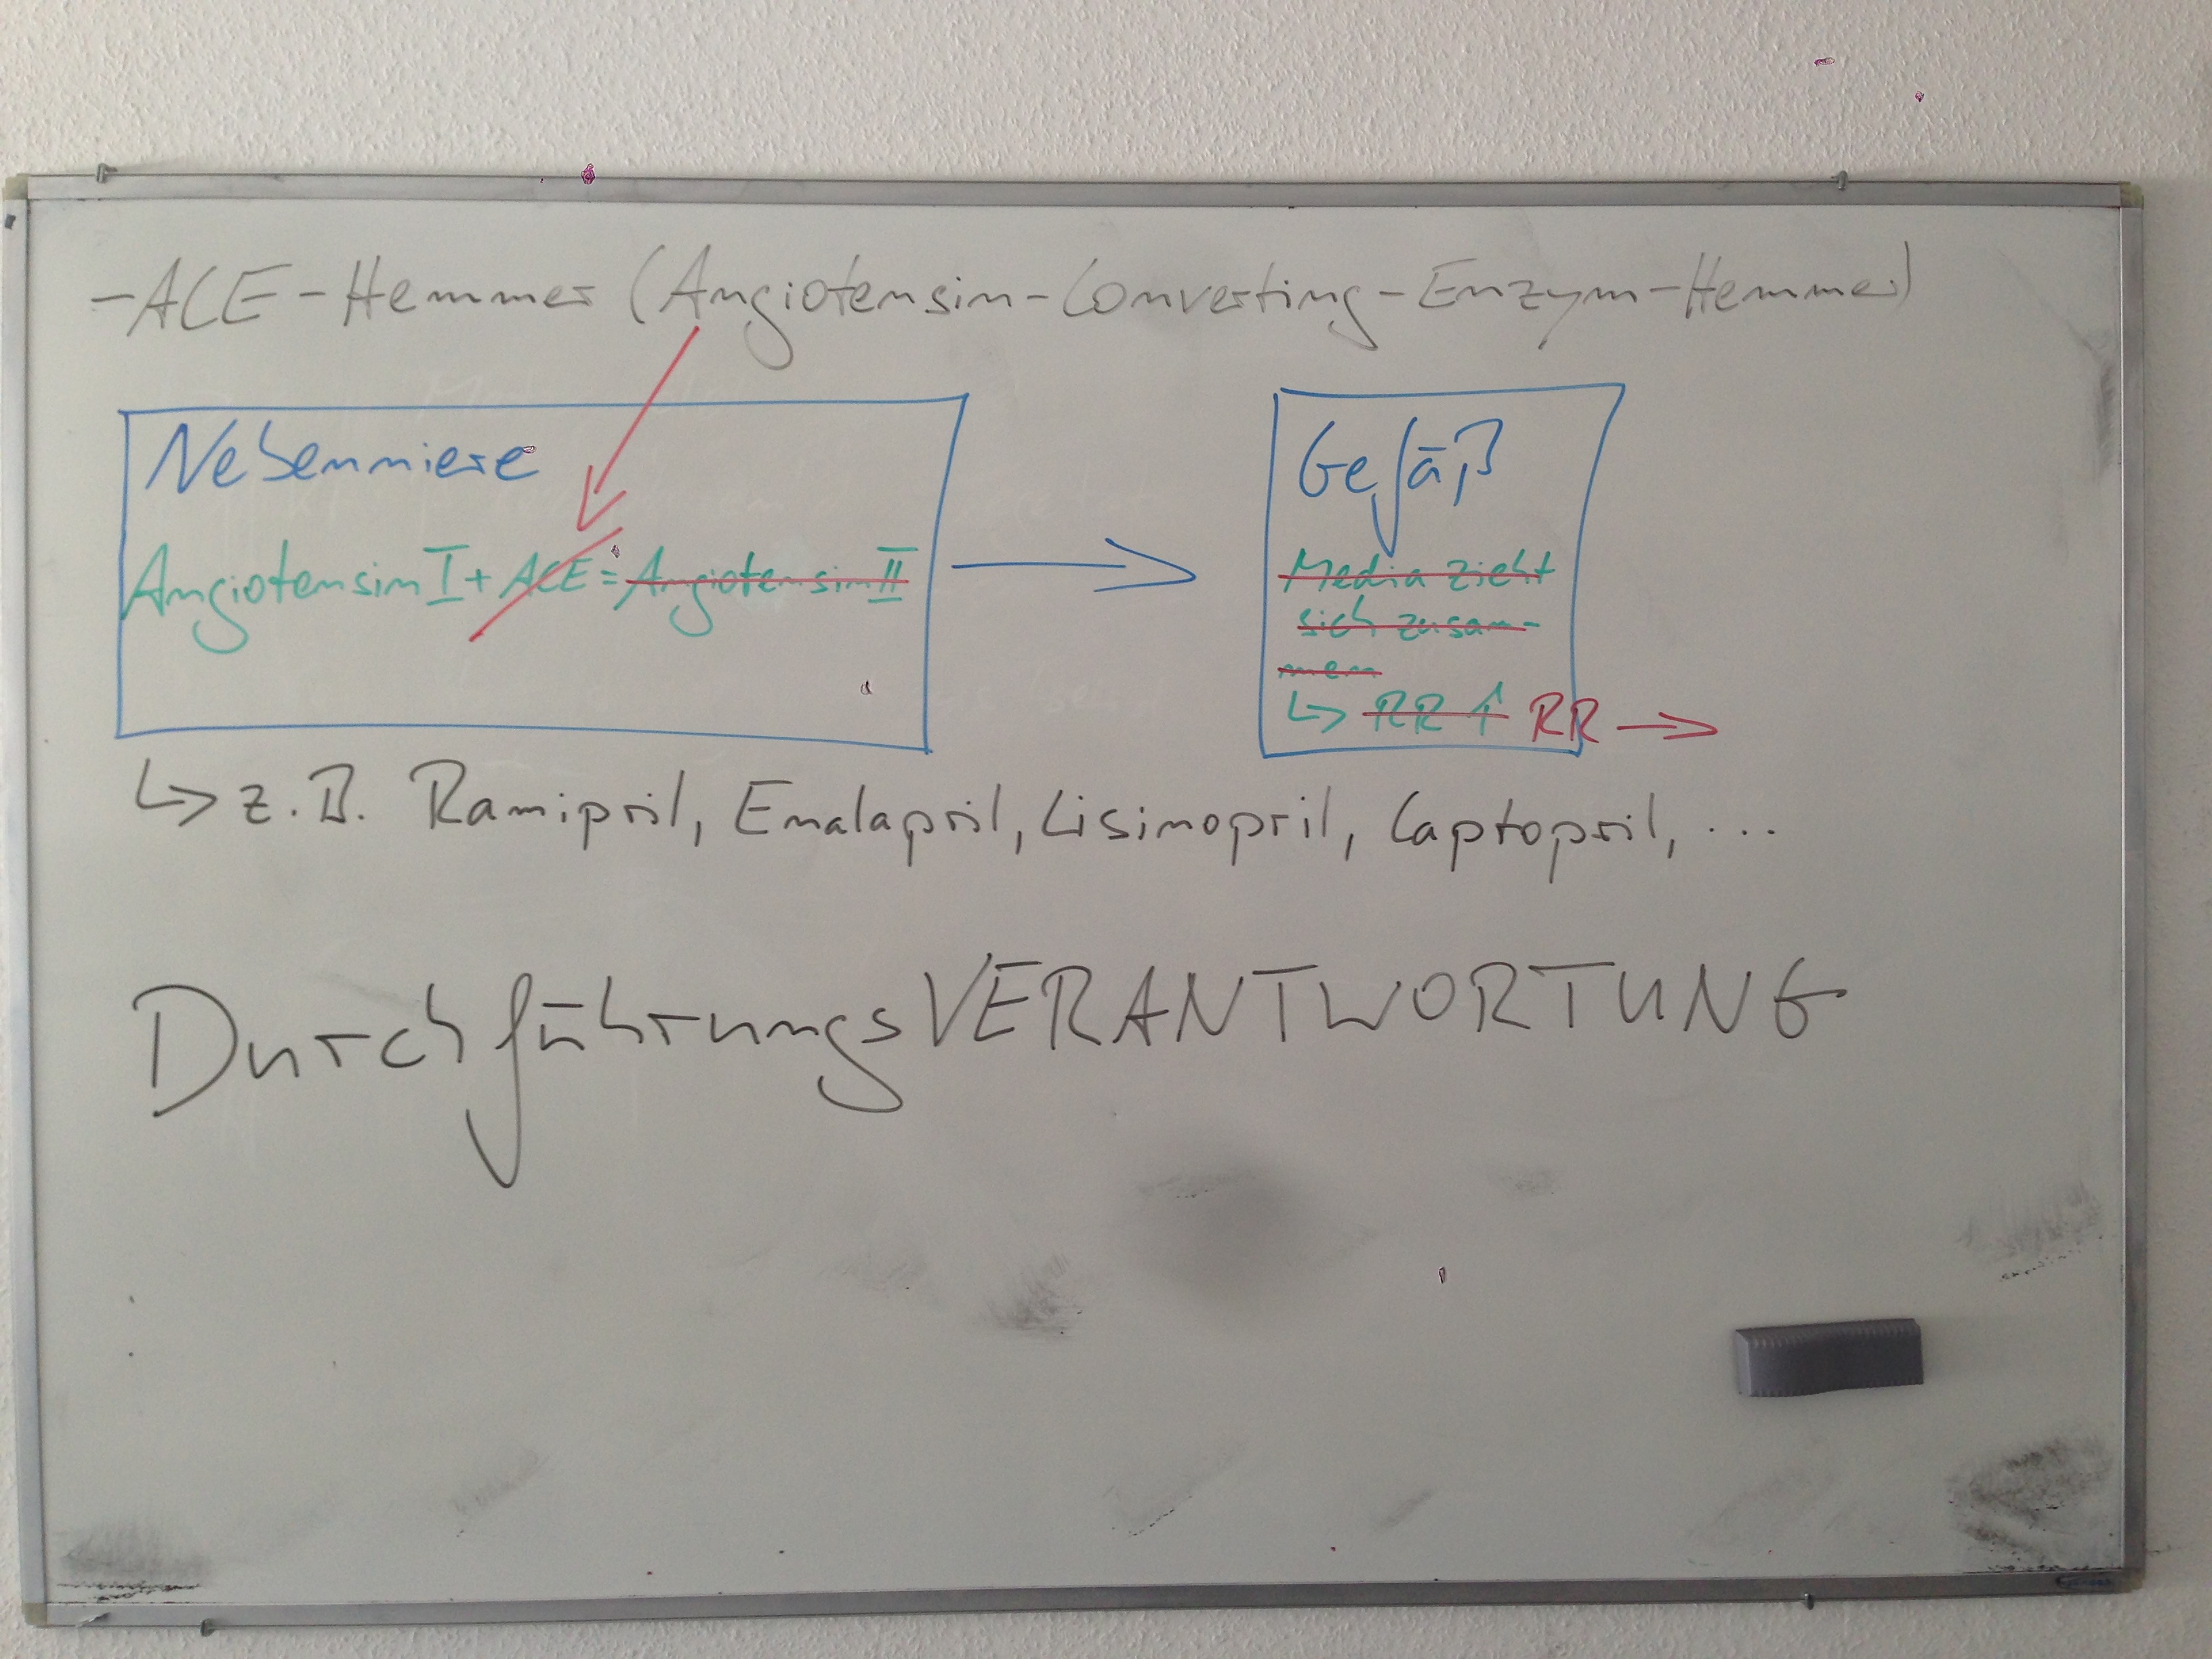 -ACE-Hemmer (Angiotensin-Converting-Enzym-Hemmer)
Nebenniere
Angiotensin I + ACE = Angiotensin II
Gefäß
Media zieht
sich zusam-
men
↳ RR ↑ RR →
↳ z.B. Ramipril, Enalapril, Lisinopril, Captopril, ...
DurchführungsVERANTWORTUNG